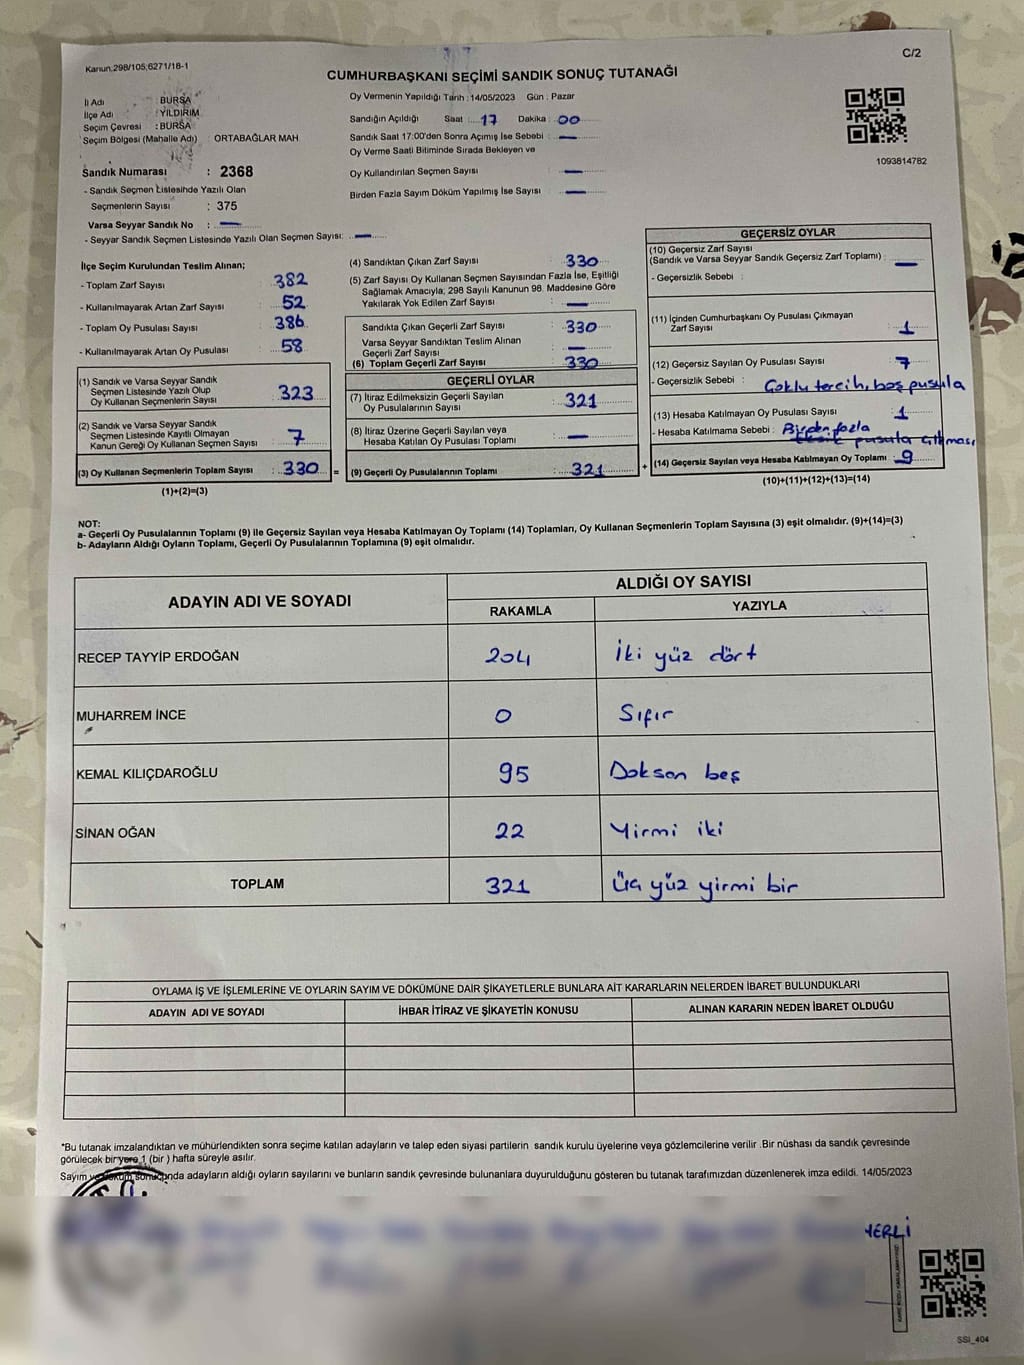 Kanun,298/105,6271/18-1
C/2
CUMHURBAŞKANI SEÇİMİ SANDIK SONUÇ TUTANAĞI
İl Adı : BURSA
İlçe Adı : YILDIRIM
Seçim Çevresi : BURSA
Seçim Bölgesi (Mahalle Adı) ORTABAĞLAR MAH
Oy Vermenin Yapıldığı Tarih :14/05/2023 Gün : Pazar
Sandığın Açıldığı Saat : 17 Dakika : 00
Sandık Saat 17:00'den Sonra Açımış İse Sebebi : —
Oy Verme Saati Bitiminde Sırada Bekleyen ve
Oy Kullandırılan Seçmen Sayısı : —
Birden Fazla Sayım Döküm Yapılmış İse Sayısı : —
1093814782
Sandık Numarası : 2368
- Sandık Seçmen Listesinde Yazılı Olan
Seçmenlerin Sayısı : 375
Varsa Seyyar Sandık No : —
- Seyyar Sandık Seçmen Listesinde Yazılı Olan Seçmen Sayısı: —
İlçe Seçim Kurulundan Teslim Alınan;
- Toplam Zarf Sayısı : 382
- Kullanılmayarak Artan Zarf Sayısı : 52
- Toplam Oy Pusulası Sayısı : 386
- Kullanılmayarak Artan Oy Pusulası : 58
(1) Sandık ve Varsa Seyyar Sandık
Seçmen Listesinde Yazılı Olup
Oy Kullanan Seçmenlerin Sayısı : 323
(2) Sandık ve Varsa Seyyar Sandık
Seçmen Listesinde Kayıtlı Olmayan
Kanun Gereği Oy Kullanan Seçmen Sayısı : 7
(3) Oy Kullanan Seçmenlerin Toplam Sayısı : 330 =
(1)+(2)=(3)
(4) Sandıktan Çıkan Zarf Sayısı : 330
(5) Zarf Sayısı Oy Kullanan Seçmen Sayısından Fazla İse, Eşitliği
Sağlamak Amacıyla; 298 Sayılı Kanunun 98. Maddesine Göre
Yakılarak Yok Edilen Zarf Sayısı : —
Sandıkta Çıkan Geçerli Zarf Sayısı : 330
Varsa Seyyar Sandıktan Teslim Alınan
Geçerli Zarf Sayısı : —
(6) Toplam Geçerli Zarf Sayısı : 330
GEÇERLİ OYLAR
(7) İtiraz Edilmeksizin Geçerli Sayılan
Oy Pusulalarının Sayısı : 321
(8) İtiraz Üzerine Geçerli Sayılan veya
Hesaba Katılan Oy Pusulası Toplamı : —
(9) Geçerli Oy Pusulalarının Toplamı : 321 +
GEÇERSİZ OYLAR
(10) Geçersiz Zarf Sayısı
(Sandık ve Varsa Seyyar Sandık Geçersiz Zarf Toplamı) : —
- Geçersizlik Sebebi :
(11) İçinden Cumhurbaşkanı Oy Pusulası Çıkmayan
Zarf Sayısı : 1
(12) Geçersiz Sayılan Oy Pusulası Sayısı : 7
- Geçersizlik Sebebi : Çoklu tercih, boş pusula
(13) Hesaba Katılmayan Oy Pusulası Sayısı : 1
- Hesaba Katılmama Sebebi : Birden fazla
pusula çıkması
(14) Geçersiz Sayılan veya Hesaba Katılmayan Oy Toplamı : 9
(10)+(11)+(12)+(13)=(14)
NOT:
a- Geçerli Oy Pusulalarının Toplamı (9) ile Geçersiz Sayılan veya Hesaba Katılmayan Oy Toplamı (14) Toplamları, Oy Kullanan Seçmenlerin Toplam Sayısına (3) eşit olmalıdır. (9)+(14)=(3)
b- Adayların Aldığı Oyların Toplamı, Geçerli Oy Pusulalarının Toplamına (9) eşit olmalıdır.
ADAYIN ADI VE SOYADI
ALDIĞI OY SAYISI
RAKAMLA YAZIYLA
RECEP TAYYİP ERDOĞAN 204 İki yüz dört
MUHARREM İNCE 0 Sıfır
KEMAL KILIÇDAROĞLU 95 Doksan beş
SİNAN OĞAN 22 Yirmi iki
TOPLAM 321 Üç yüz yirmi bir
OYLAMA İŞ VE İŞLEMLERİNE VE OYLARIN SAYIM VE DÖKÜMÜNE DAİR ŞİKAYETLERLE BUNLARA AİT KARARLARIN NELERDEN İBARET BULUNDUKLARI
ADAYIN ADI VE SOYADI İHBAR İTİRAZ VE ŞİKAYETİN KONUSU ALINAN KARARIN NEDEN İBARET OLDUĞU
*Bu tutanak imzalandıktan ve mühürlendikten sonra seçime katılan adayların ve talep eden siyasi partilerin sandık kurulu üyelerine veya gözlemcilerine verilir .Bir nüshası da sandık çevresinde
görülecek bir yere 1 (bir ) hafta süreyle asılır.
Sayım ve döküm sonucunda adayların aldığı oyların sayılarını ve bunların sandık çevresinde bulunanlara duyurulduğunu gösteren bu tutanak tarafımızdan düzenlenerek imza edildi. 14/05/2023
YERLİ
SSI_404